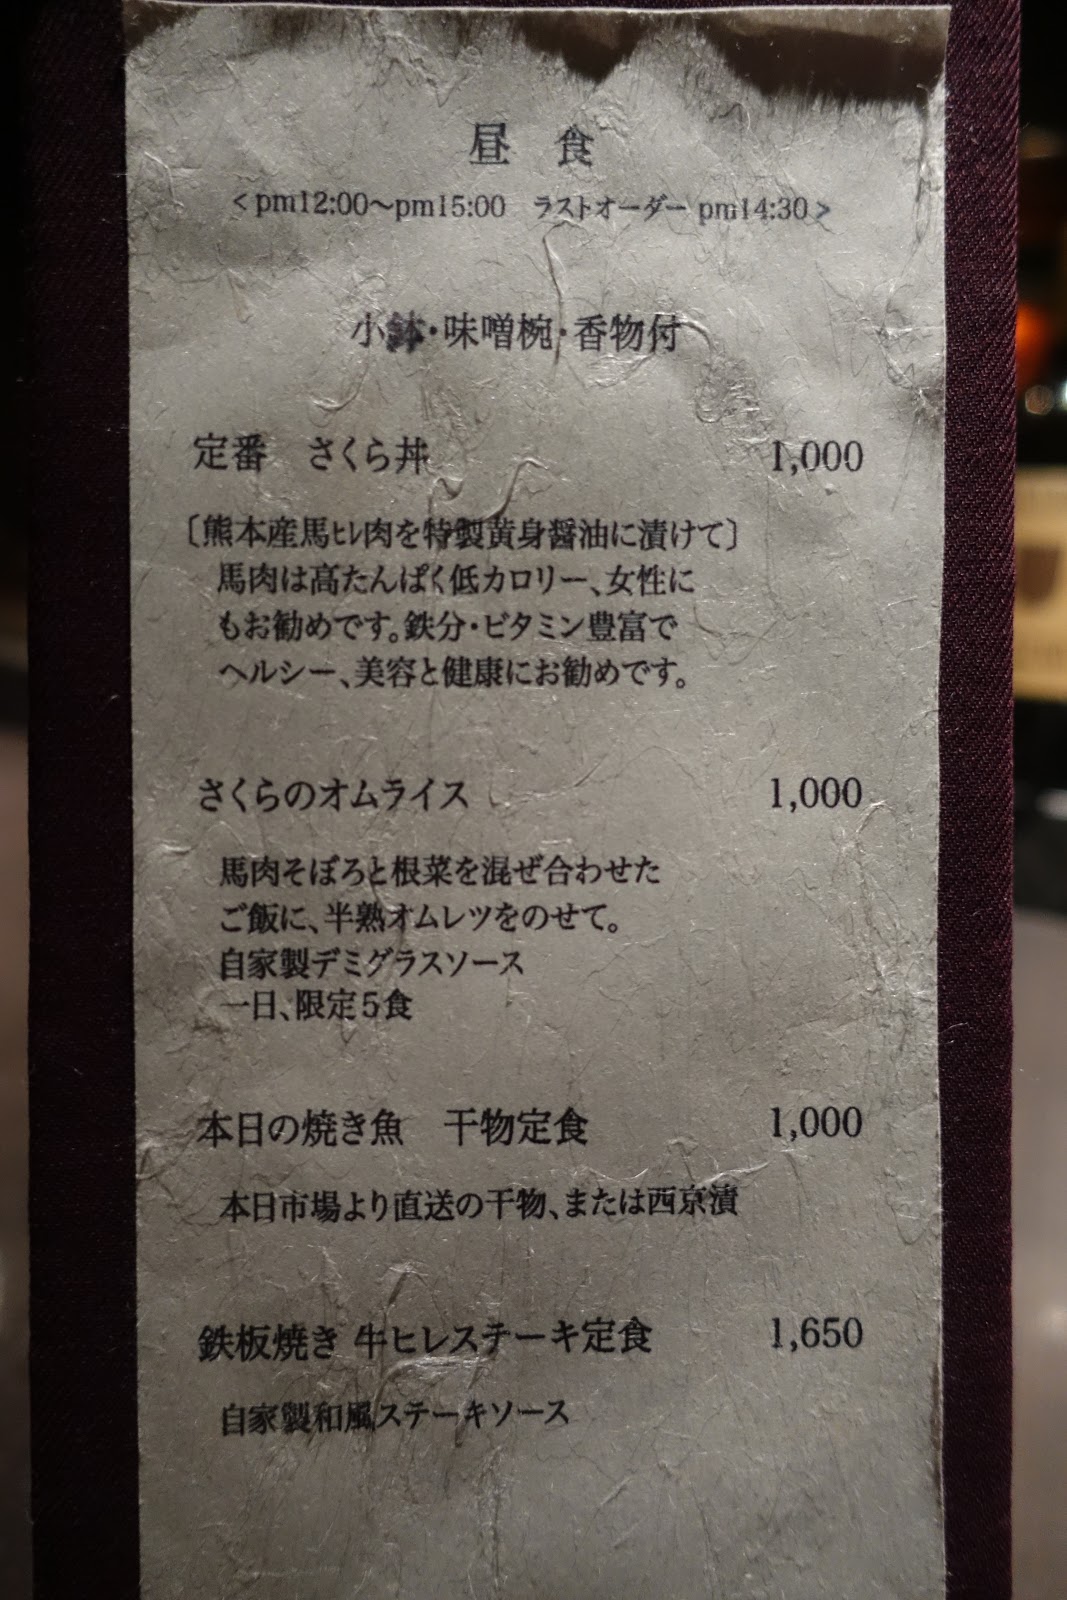 昼 食
<pm12:00～pm15:00 ラストオーダー pm14:30>
小鉢・味噌椀・香物付
定番 さくら丼 1,000
〔熊本産馬ヒレ肉を特製黄身醤油に漬けて〕
馬肉は高たんぱく低カロリー、女性に
もお勧めです。鉄分・ビタミン豊富で
ヘルシー、美容と健康にお勧めです。
さくらのオムライス 1,000
馬肉そぼろと根菜を混ぜ合わせた
ご飯に、半熟オムレツをのせて。
自家製デミグラスソース
一日、限定5食
本日の焼き魚 干物定食 1,000
本日市場より直送の干物、または西京漬
鉄板焼き 牛ヒレステーキ定食 1,650
自家製和風ステーキソース